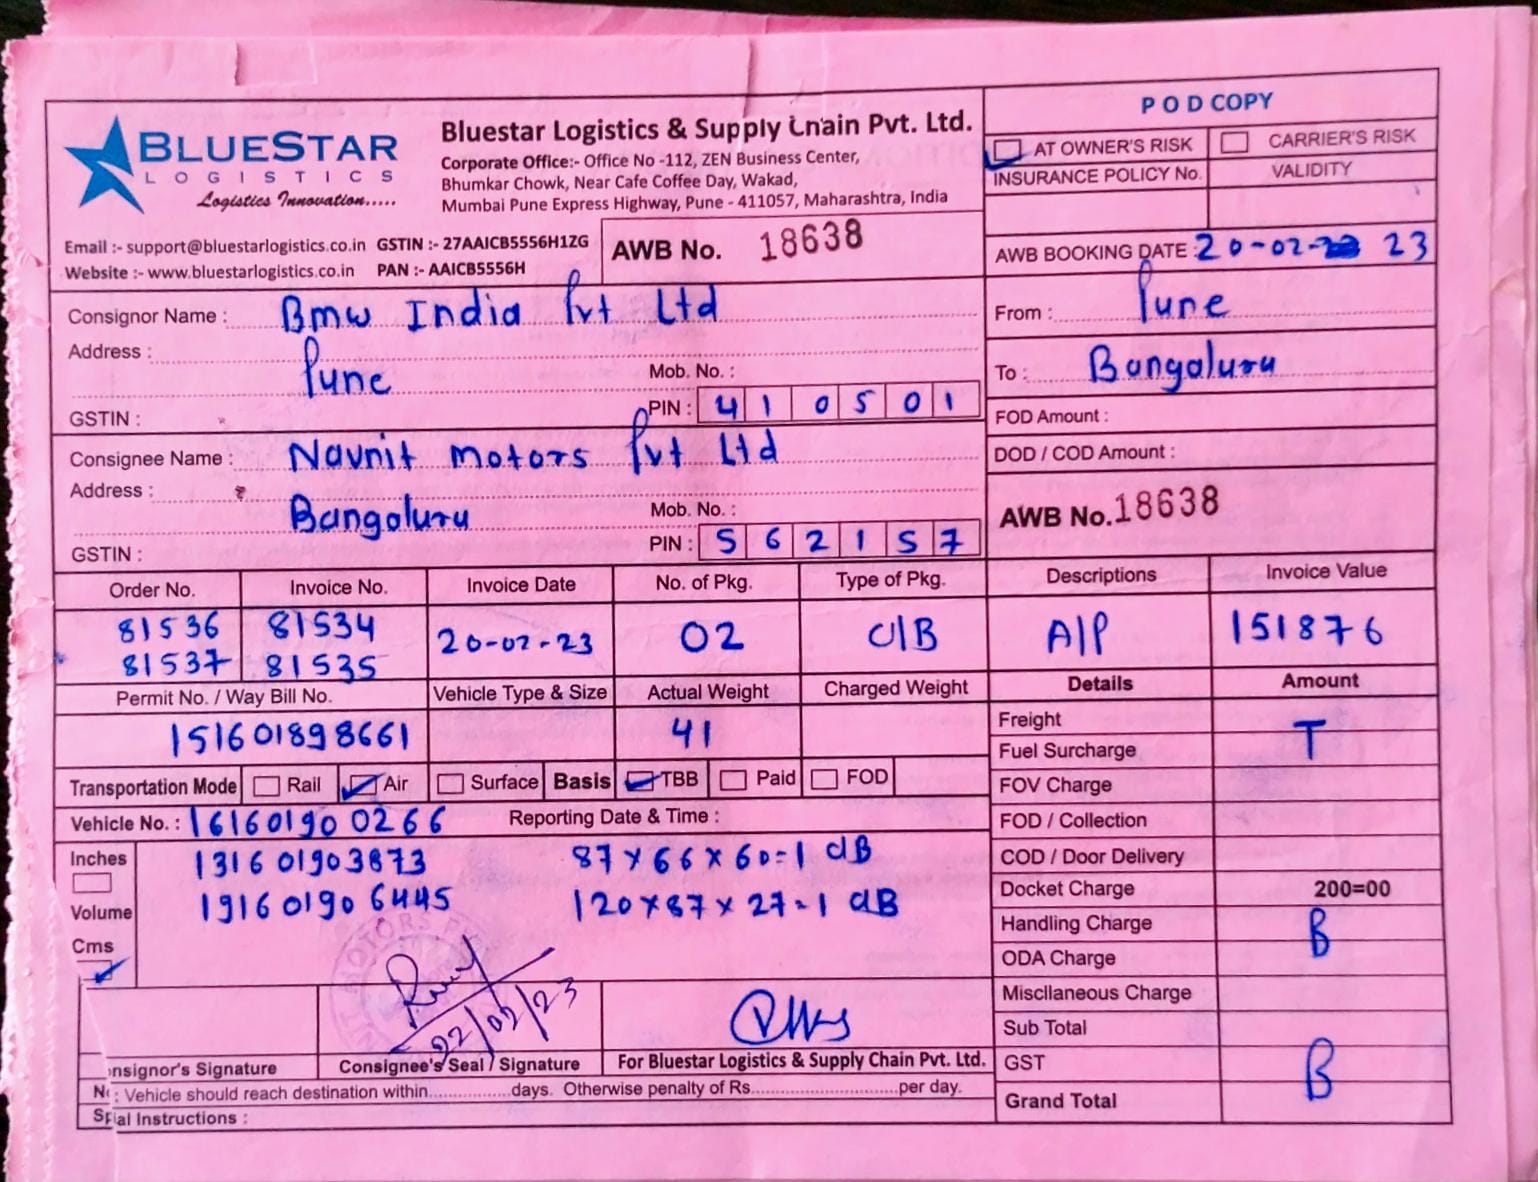 BLUESTAR
LOGISTICS
Logistics Innovation.....
Bluestar Logistics & Supply Chain Pvt. Ltd.
Corporate Office:- Office No -112, ZEN Business Center,
Bhumkar Chowk, Near Cafe Coffee Day, Wakad,
Mumbai Pune Express Highway, Pune - 411057, Maharashtra, India
Email :- support@bluestarlogistics.co.in GSTIN :- 27AAICB5556H1ZG
Website :- www.bluestarlogistics.co.in PAN :- AAICB5556H
AWB No. 18638
POD COPY
AT OWNER'S RISK CARRIER'S RISK
INSURANCE POLICY No. VALIDITY
AWB BOOKING DATE : 20-02-23
Consignor Name : Bmw India Pvt Ltd
Address : Pune
Mob. No. :
GSTIN : PIN : 410501
From : Pune
To : Bangaluru
FOD Amount :
DOD / COD Amount :
Consignee Name : Navnit Motors Pvt Ltd
Address : Bangaluru
Mob. No. :
GSTIN : PIN : 562157
AWB No. 18638
Order No. Invoice No. Invoice Date No. of Pkg. Type of Pkg. Descriptions Invoice Value
81536 81534 20-02-23 02 C/B A/P 151876
81537 81535
Permit No. / Way Bill No. Vehicle Type & Size Actual Weight Charged Weight
151601898661 41
Transportation Mode Rail Air Surface Basis TBB Paid FOD
Vehicle No. : 161601900266 Reporting Date & Time :
Inches 131601903873 87 x 66 x 60 = 1 CB
Volume 191601906445 120 x 87 x 27 = 1 CB
Cms
Details Amount
Freight T
Fuel Surcharge
FOV Charge
FOD / Collection
COD / Door Delivery
Docket Charge 200=00
Handling Charge B
ODA Charge
Miscllaneous Charge
Sub Total
GST B
Grand Total
22/02/23
nsignor's Signature Consignee's Seal / Signature For Bluestar Logistics & Supply Chain Pvt. Ltd.
: Vehicle should reach destination within.................days. Otherwise penalty of Rs..............................per day.
ial Instructions :